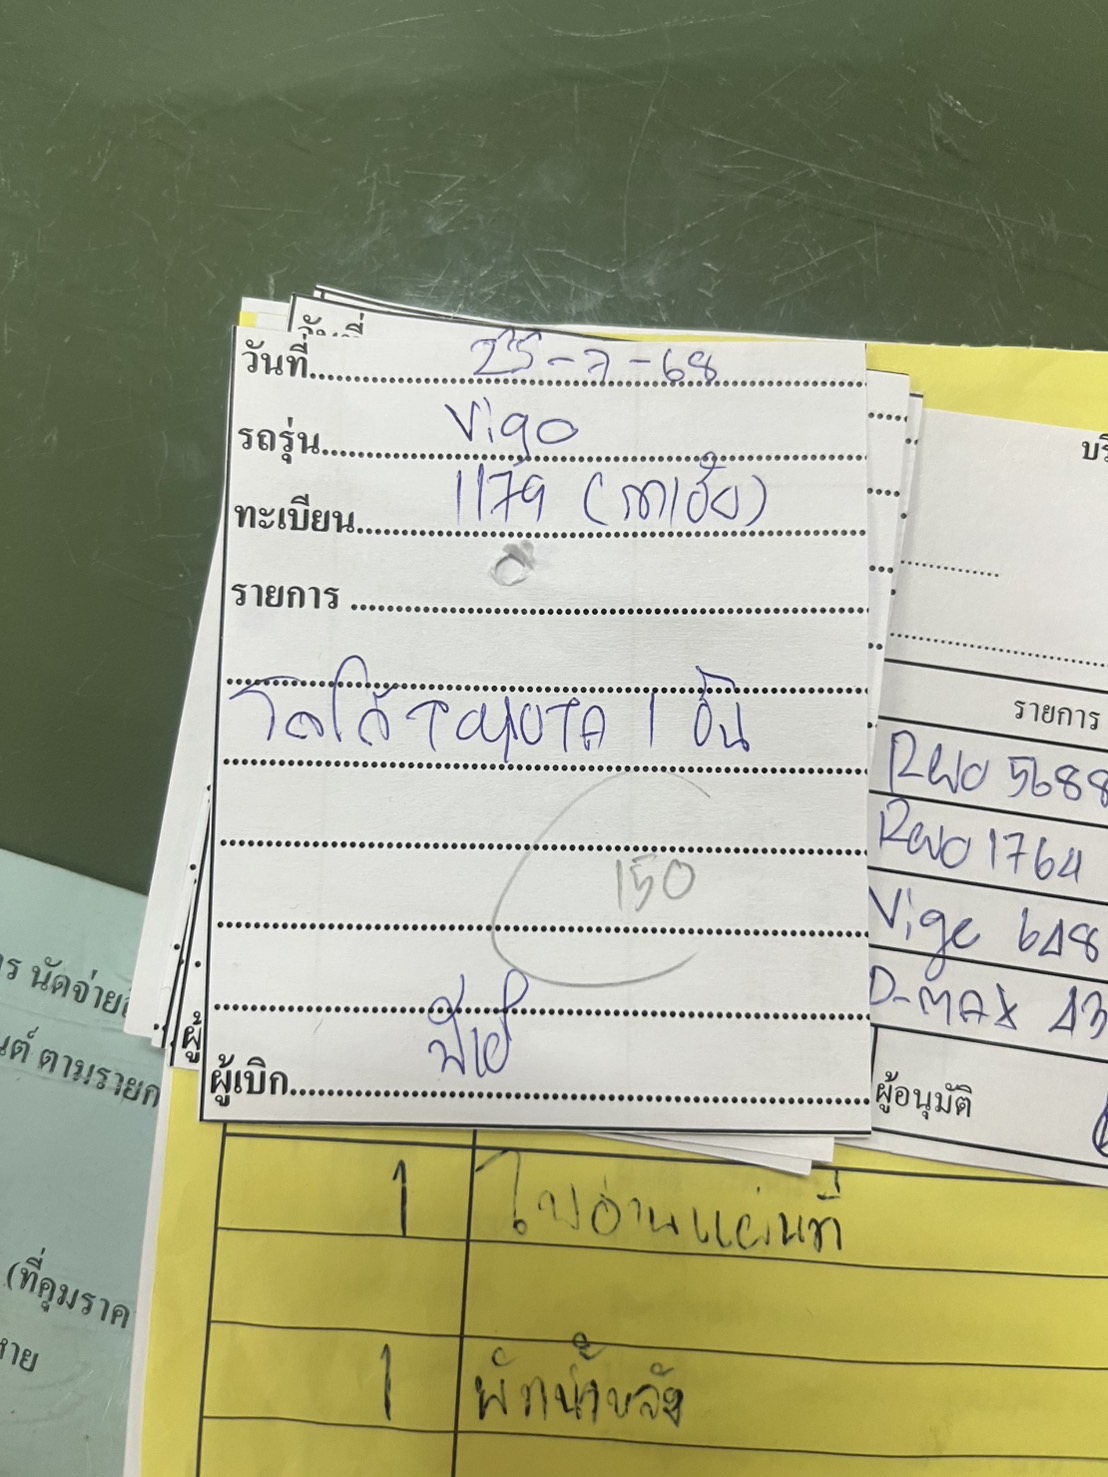 วันที่ 25-7-68
รถรุ่น Vigo
ทะเบียน 1179
รายการ
โลโก้ TOYOTA 1 ชิ้น
150
ผู้เบิก
วันที่
รายการ
Revo 5688
Revo 1764
Vigo 648
D-MAX 43
ผู้อนุมัติ
นัดจ่าย
ตามราย
(ที่คุมราค
หาย
1 ใบอ่านแผ่นที่
1